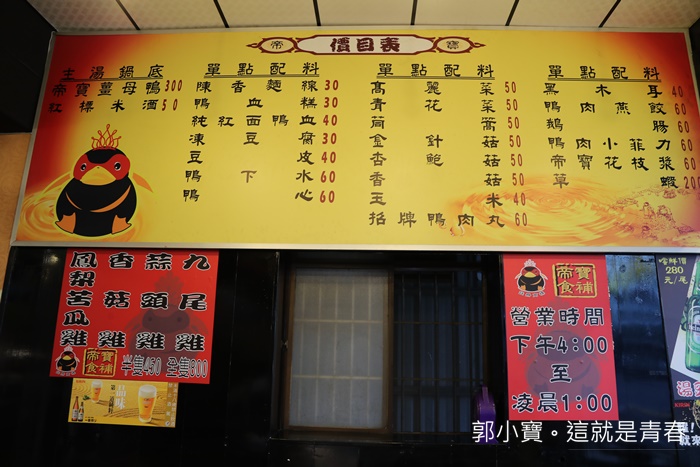 帝 價目表 寶
主湯鍋底
帝寶薑母鴨300
紅標米酒50
單點配料
陳香麵線30
鴨血糕30
純紅面鴨
凍豆腐30
豆皮40
鴨下水60
鴨心60
單點配料
高麗菜50
青花菜50
茼蒿50
金針菇50
杏鮑菇50
香菇50
玉米40
招牌鴨肉丸60
單點配料
黑木耳40
鴨肉燕餃60
鵝腸60
鴨肉小花枝
帝寶韮力漿60
草蝦200
鳳梨苦瓜雞
香菇雞
蒜頭雞
九尾雞
帝寶食補
半隻450 全隻800
品味
帝寶食補
營業時間
下午4:00
至
凌晨1:00
嚐鮮價
280
元/尾
郭小寶。這就是青春